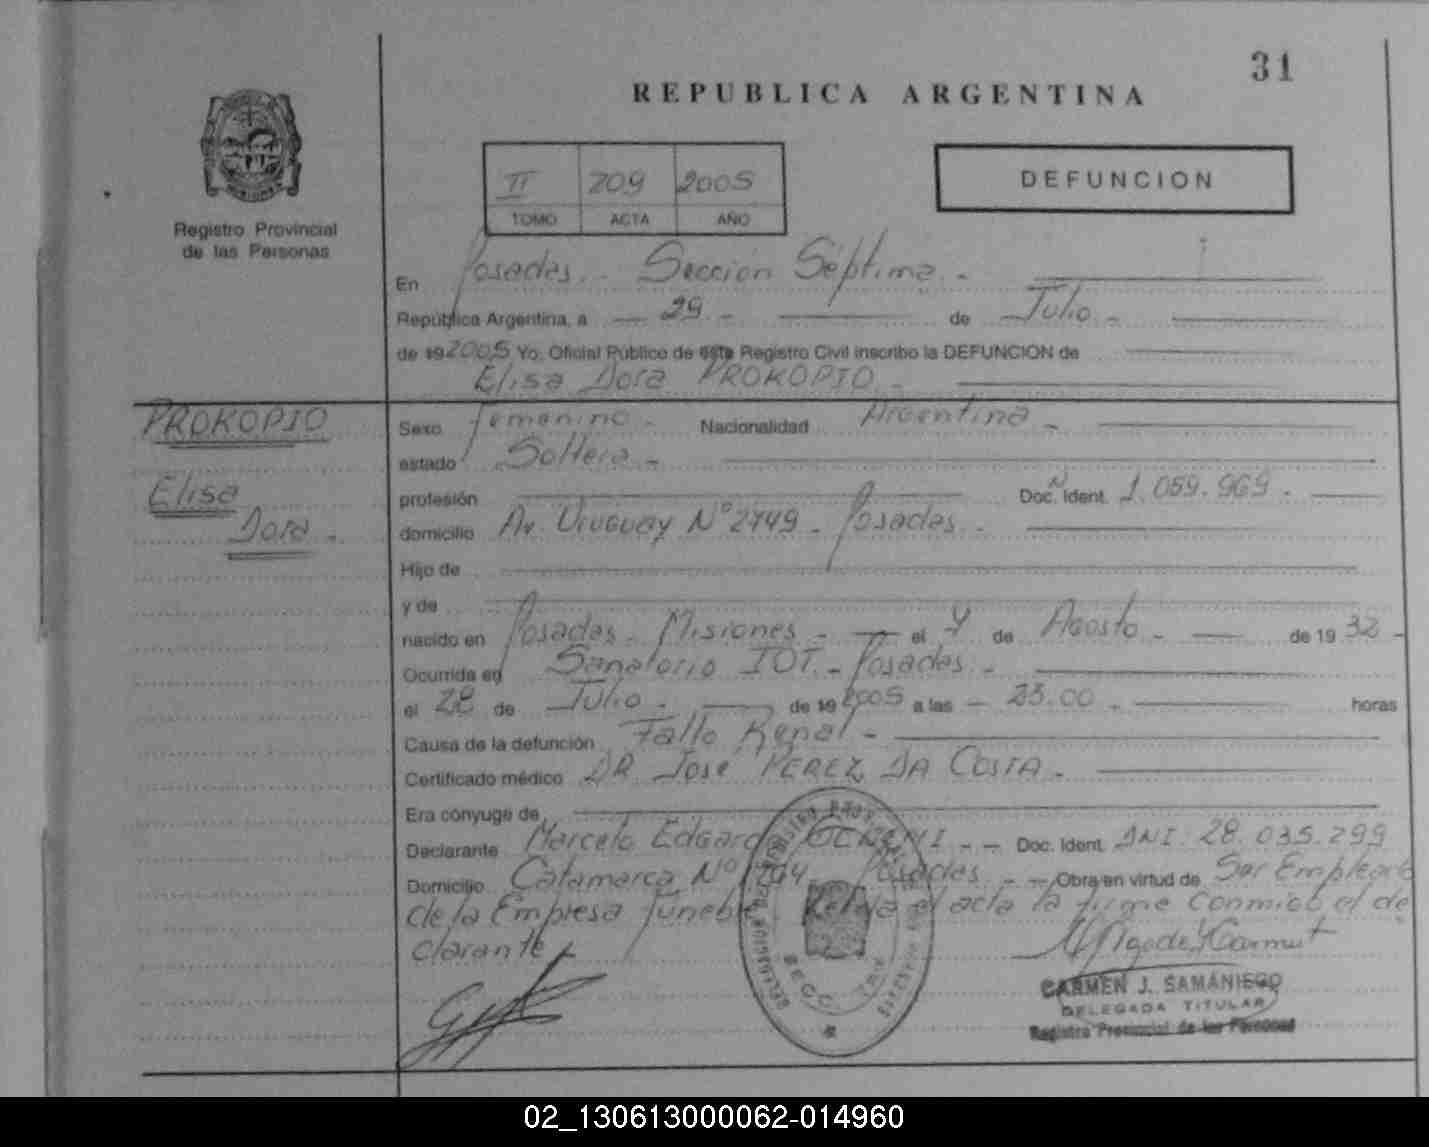 31
REPUBLICA ARGENTINA
Registro Provincial
de las Personas
II 709 2005
TOMO ACTA AÑO
DEFUNCION
En Posadas - Sección Séptima -
República Argentina, a - 29 - de Julio -
de 19 2005 Yo, Oficial Público de este Registro Civil inscribo la DEFUNCION de
Elisa Dora PROKOPIO -
PROKOPIO
Elisa
Dora -
Sexo Femenino - Nacionalidad Argentina -
estado Soltera -
profesión Doc. Ident. N 1.059.969 -
domicilio Av. Uruguay Nº 2749 - Posadas -
Hijo de
y de
nacido en Posadas - Misiones - el 4 de Agosto - de 19 32 -
Ocurrida en Sanatorio IOT - Posadas -
el 28 de Julio - de 19 2005 a las - 23.00 - horas
Causa de la defunción Fallo Renal -
Certificado médico DR José PEREZ DA COSTA -
Era cónyuge de
Declarante Marcelo Edgardo - - Doc. Ident. DNI. 28.035.299
Domicilio Catamarca Nº Posadas - - Obra en virtud de Ser Empleado
de la Empresa fúnebre el acta la firme conmigo el de
clarante
CARMEN J. SAMANIEGO
DELEGADA TITULAR
Registro Provincial de las Personas
02_130613000062-014960